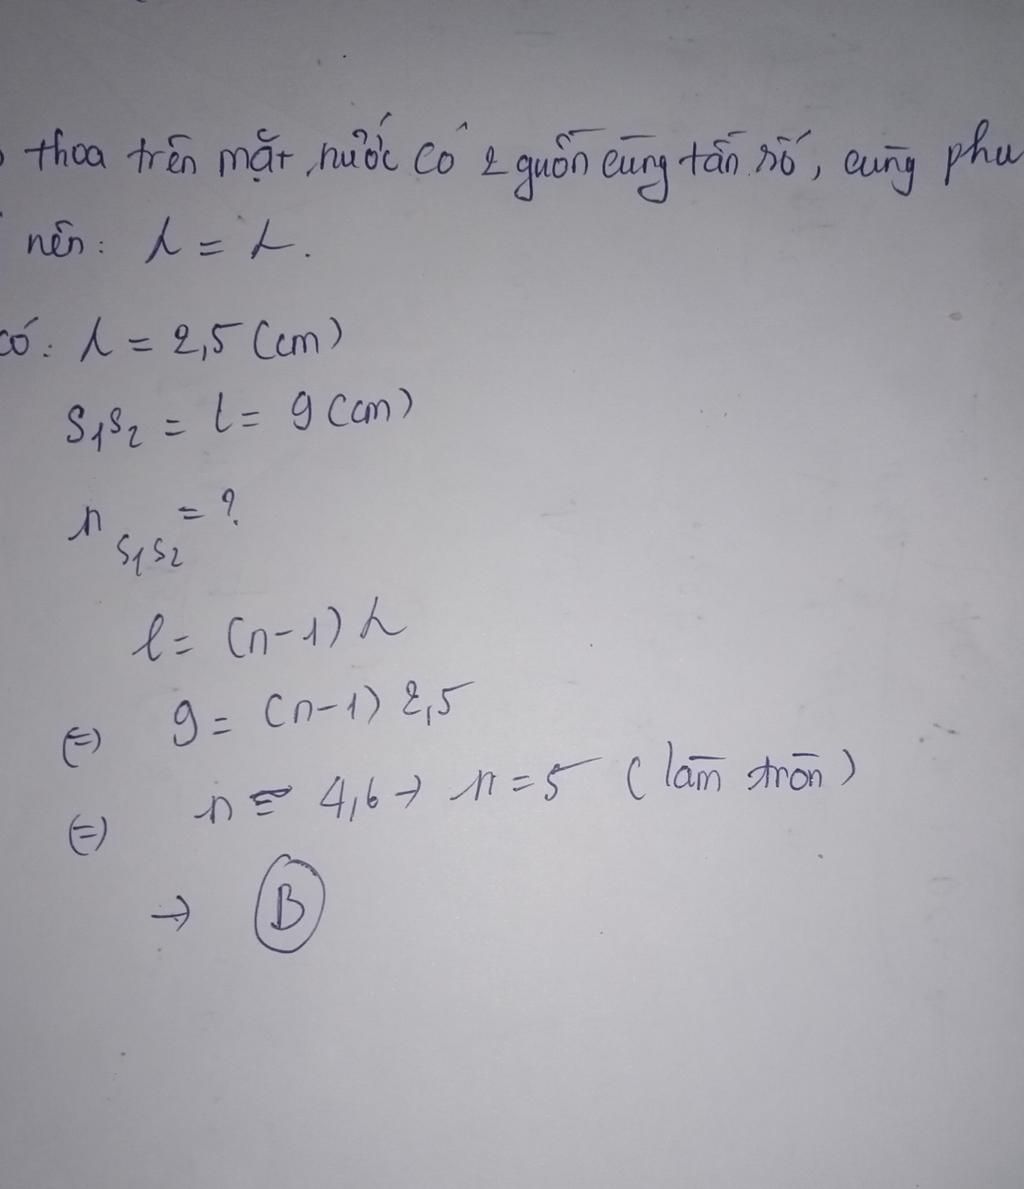 thoa trên mặt nước có 2 guồn cùng tần số, cùng phu
nên: λ = λ.
có: λ = 2,5 (cm)
S₁S₂ = l = 9 (cm)
n S₁S₂ = ?
l = (n-1) λ
(=) 9 = (n-1) 2,5
(=) n = 4,6 → n = 5 (làm tròn)
→ B